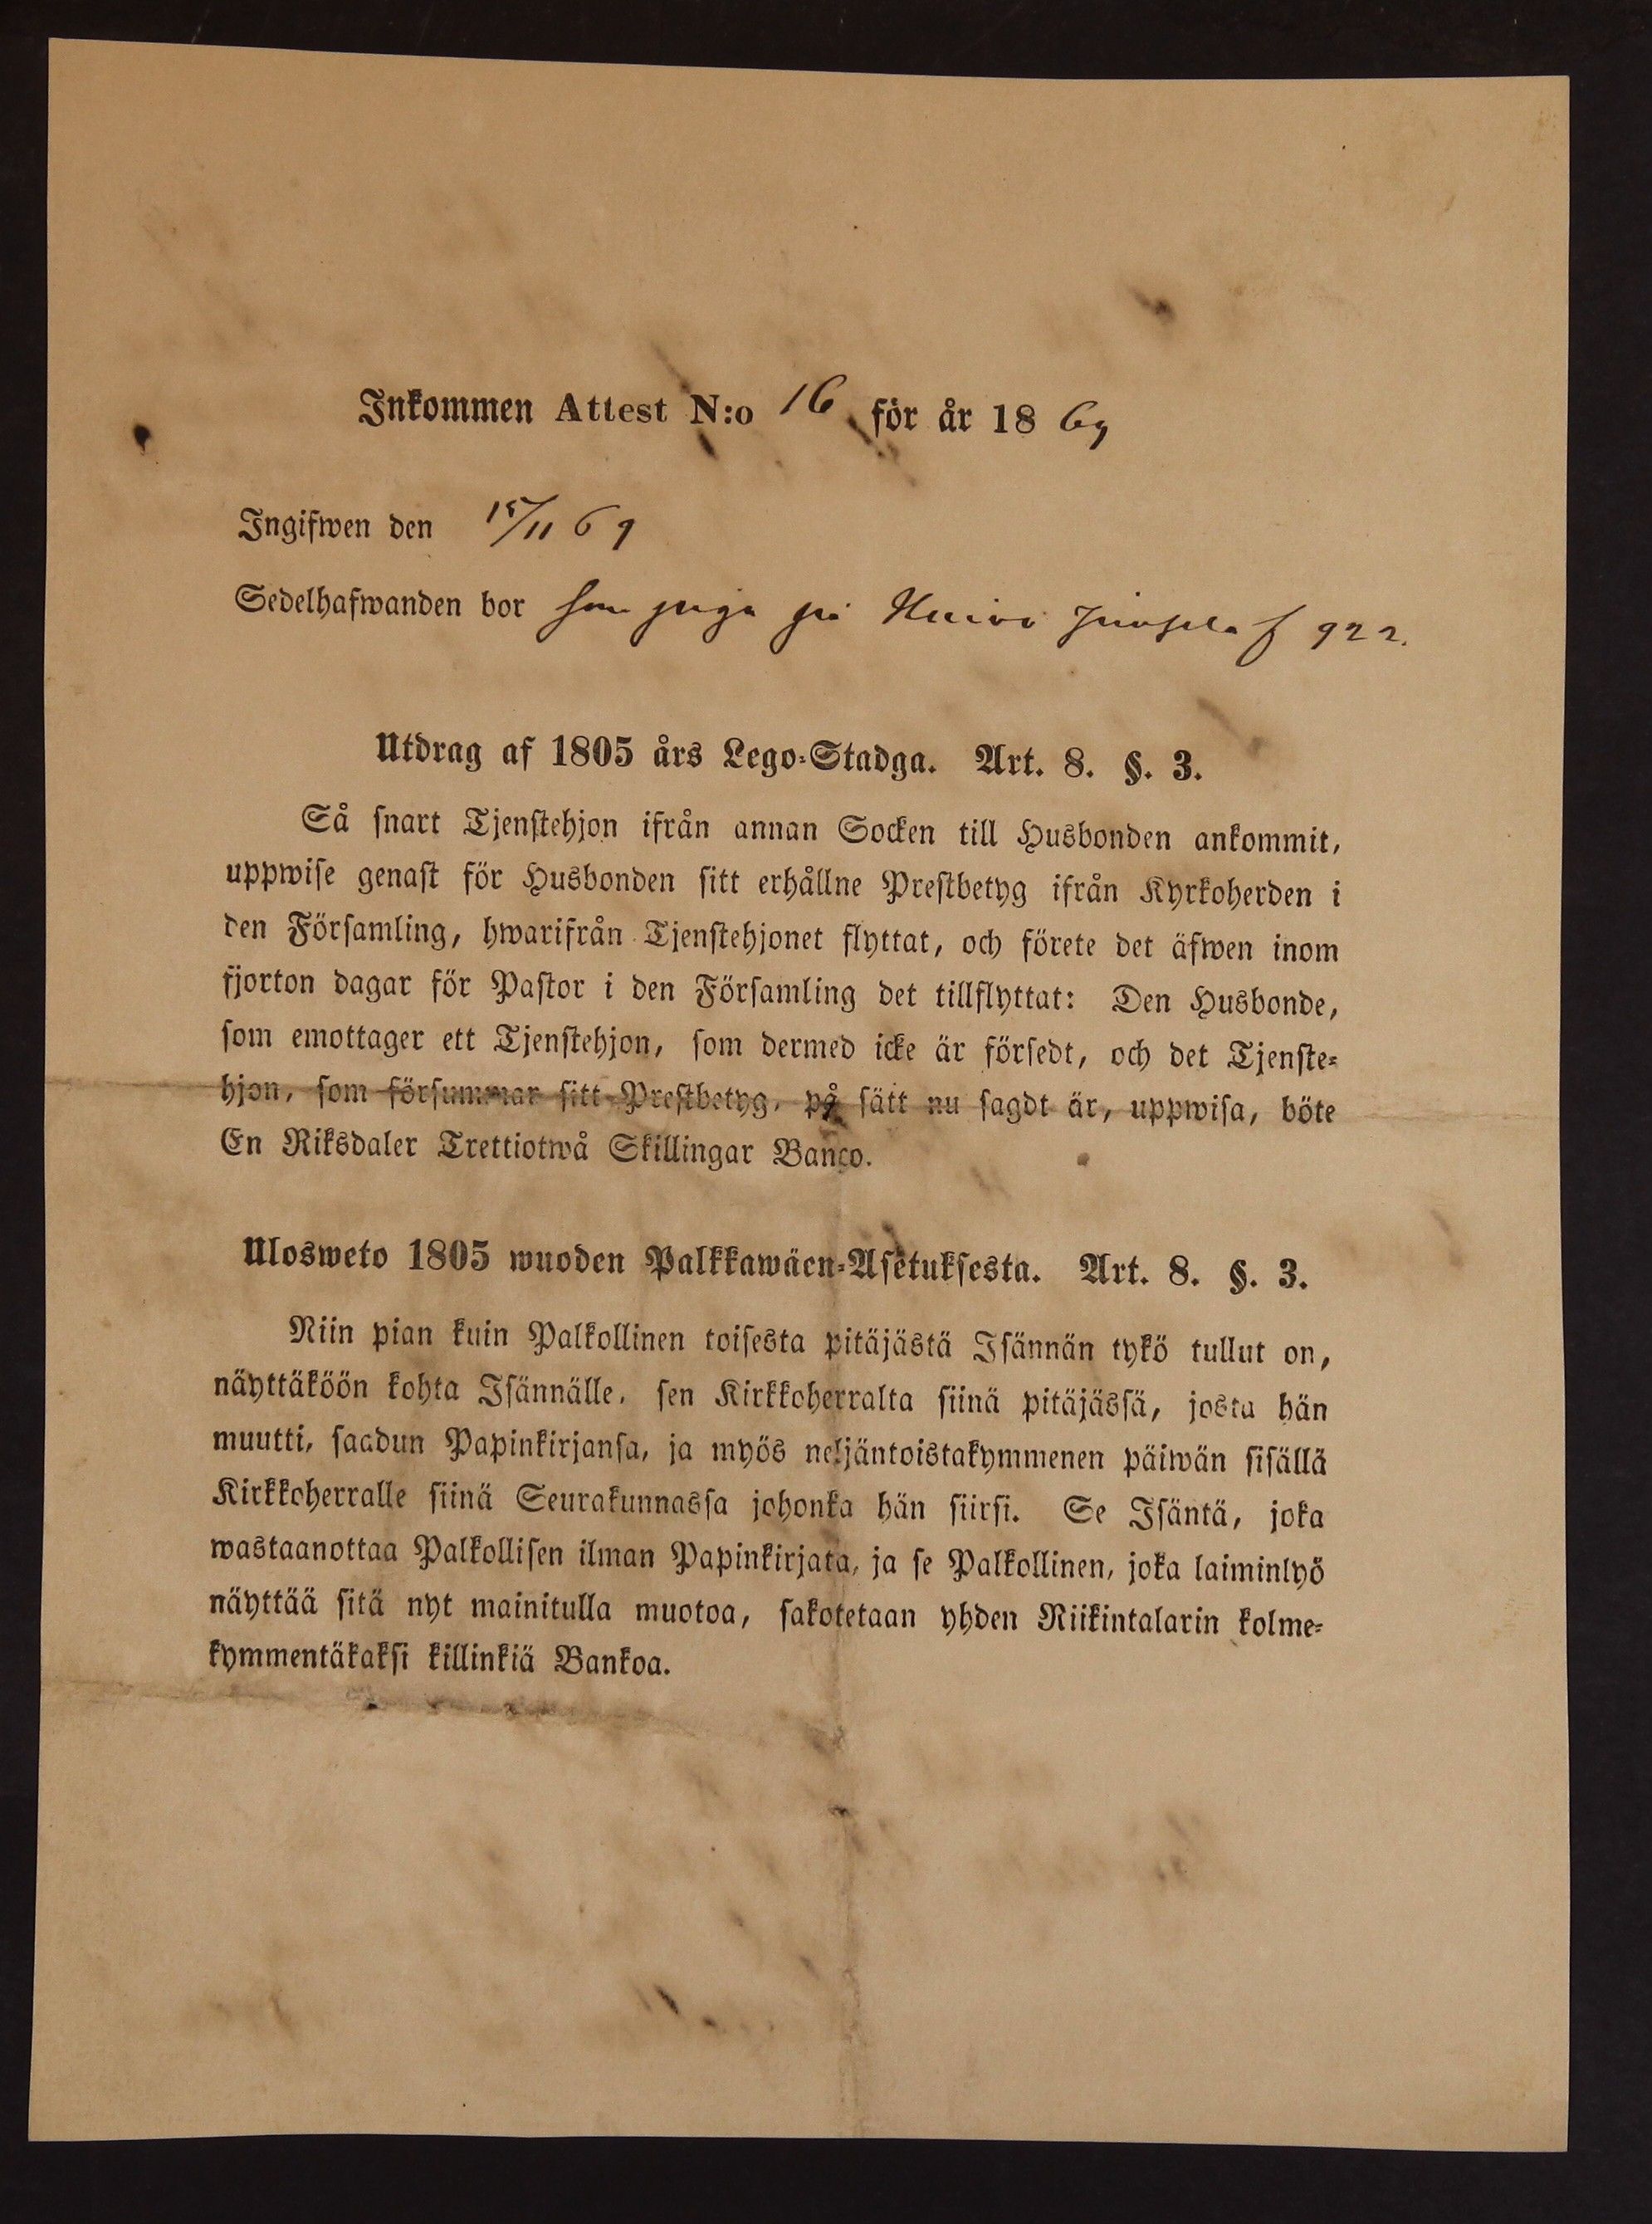 Inkommen Attest N:o 16 för år 1869
Ingifwen den 15/11 69
Sedelhafwanden bor som piga på 922.
Utdrag af 1805 års Lego-Stadga. Art. 8. §. 3.
Så snart Tjenstehjon ifrån annan Socken till Husbonden ankommit,
uppwise genast för Husbonden sitt erhållne Prestbetyg ifrån Kyrkoherden i
den Församling, hwarifrån Tjenstehjonet flyttat, och förete det äfwen inom
fjorton dagar för Pastor i den Församling det tillflyttat: Den Husbonde,
som emottager ett Tjenstehjon, som dermed icke är försedt, och det Tjenste-
hjon, som försummar sitt Prestbetyg, på sätt nu sagdt är, uppwisa, böte
En Riksdaler Trettiotwå Skillingar Banco.
Ulosweto 1805 wuoden Palkkawäen-Asetuksesta. Art. 8. §. 3.
Niin pian kuin Palkollinen toisesta pitäjästä Isännän tykö tullut on,
näyttäköön kohta Isännälle, sen Kirkkoherralta siinä pitäjässä, josta hän
muutti, saadun Papinkirjansa, ja myös neljäntoistakymmenen päiwän sisällä
Kirkkoherralle siinä Seurakunnassa johonka hän siirsi. Se Isäntä, joka
wastaanottaa Palkollisen ilman Papinkirjata, ja se Palkollinen, joka laiminlyö
näyttää sitä nyt mainitulla muotoa, sakotetaan yhden Riikintalarin kolme-
kymmentäkaksi killinkiä Bankoa.